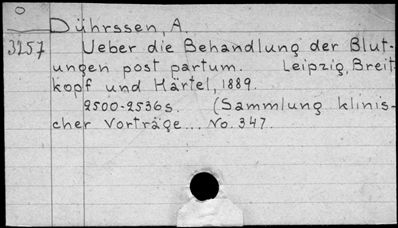 O
Dührssen, A
3257 Ueber die Behandlung der Blut-
ungen post partum. Leipzig, Breit-
kopf und Härtel, 1889.
2500-2536s. (Sammlung klinis-
cher Vorträge... No. 347.